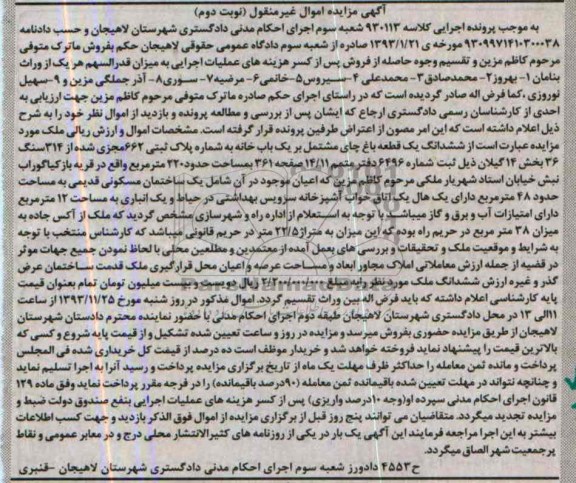 آگهی مزایده اموال غیرمنقول (نوبت دوم)
به موجب پرونده اجرایی کلاسه ۹۳۰۱۱۳ شعبه سوم اجرای احکام مدنی دادگستری شهرستان لاهیجان و حسب دادنامه
۹۳۰۹۹۷۱۴۱۰۳۰۰۰۳۸ مورخه ی ۱۳۹۳/۱/۲۱ صادره از شعبه سوم دادگاه عمومی حقوقی لاهیجان حکم بفروش ماترک متوفی
مرحوم کاظم مزین و تقسیم وجوه حاصله از فروش پس از کسر هزینه های عملیات اجرایی به میزان قدرالسهم هر یک از وراث
بنامان ۱- بهروز۲- محمدصادق۳- محمدعلی ۴-سیروس۵-خانمی۶- مرضیه۷- سوری۸- آذر جملگی مزین و ۹-سهیل
نوروزی ،کما فرض اله صادر گردیده است که در راستای اجرای حکم صادره ماترک متوفی مرحوم کاظم مزین جهت ارزیابی به
احدی از کارشناسان رسمی دادگستری ارجاع که ایشان پس از بررسی و مطالعه پرونده و بازدید از اموال نظر خود را به شرح
ذیل اعلام داشته است که این امر مصون از اعتراض طرفین پرونده قرار گرفته است. مشخصات اموال و ارزش ریالی ملک مورد
مزایده عبارت است از ششدانگ یک قطعه باغ چای مشتمل بر یک باب خانه به شماره پلاک ثبتی ۶۶۲مجزی شده از ۳۱۴سنگ
۳۶ بخش ۱۴ گیلان ذیل ثبت شماره ۶۴۹۶ دفتر متمم ۱۴/۱۱ صفحه ۳۶۱ بمساحت حدود۲۲۰ مترمربع واقع در قریه بازکیاگوراب
نبش خیابان استاد شهریار ملکی مرحوم کاظم مزین که اعیان موجود در آن شامل یک ساختمان مسکونی قدیمی به مساحت
حدود ۴۸ مترمربع دارای یک هال یک اتاق خواب آشپزخانه سرویس بهداشتی در حیاط و یک انباری به مساحت ۱۲ مترمربع
دارای امتیازات آب و برق و گاز میباشد. با توجه به استعلام از اداره راه و شهرسازی مشخص گردید که ملک از آکس جاده به
میزان ۳۸ متر مربع در حریم راه بوده که این میزان به متراژ ۲۲/۵ متر در حریم قانونی میباشد که کارشناس منتخب با توجه
به شرایط و موقعیت ملک و تحقیقات و بررسی های بعمل آمده از معتمدین و مطلعین محلی با لحاظ نمودن جمیع جهات موثر
در قضیه از جمله ارزش معاملاتی املاک مجاور ابعاد و مساحت عرصه و اعیان محل قرارگیری ملک قدمت ساختمان عرض
گذر و غیره ارزش ششدانگ ملک مورد نظر
میلیون تومان تمام بعنوان قیمت
پایه کارشناسی اعلام داشته که باید فرض اله بین وراث تقسیم گردد. اموال مذکور در روز شنبه مورخ ۱۳۹۳/۱۱/۲۵ از ساعت
۱۱الی ۱۳ در محل دادگستری شهرستان لاهیجان طبقه دوم اجرای احکام مدنی با حضور نماینده محترم دادستان شهرستان
لاهیجان از طریق مزایده حضوری بفروش میرسد و مزایده در روز و ساعت تعیین شده تشکیل و از قیمت پایه شروع و کسی که
بالاترین قیمت را پیشنهاد نماید فروخته خواهد شد و خریدار موظف است ده درصد از قیمت کل خریداری شده فی المجلس
پرداخت و مانده ثمن معامله را حداکثر ظرف مهلت یک ماه از تاریخ برگزاری مزایده پرداخت و رسید آنرا به اجرا تسلیم نماید
و چنانچه نتواند در مهلت تعیین شده باقیمانده ثمن معامله (۹۰درصد باقیمانده) را در فرجه مقرر پرداخت نماید وفق ماده ۱۲۹
قانون اجرای احکام مدنی سپرده او(وجه ۱۰درصد واریزی) پس از کسر هزینه های عملیات اجرایی بنفع صندوق دولت ضبط و
مزایده تجدید میگردد. متقاضیان می توانند پنج روز قبل از برگزاری مزایده از اموال فوق الذکر بازدید و جهت کسب اطلاعات
بیشتر به این اجرا مراجعه فرمایند این آگهی یک بار در یکی از روزنامه های کثیرالانتشار محلی درج و در معابر عمومی و نقاط
پرجمعیت شهر الصاق میگردد.
ح۴۵۵۳ دادورز شعبه سوم اجرای احکام مدنی دادگستری شهرستان لاهیجان -قنبری